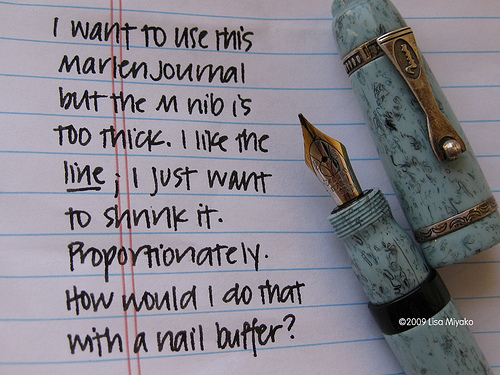 I want to use this
Marlen Journal
but the M nib is
too thick. I like the
line; I just want
to shrink it.
Proportionately.
How would I do that
with a nail buffer?
©2009 Lisa Miyako